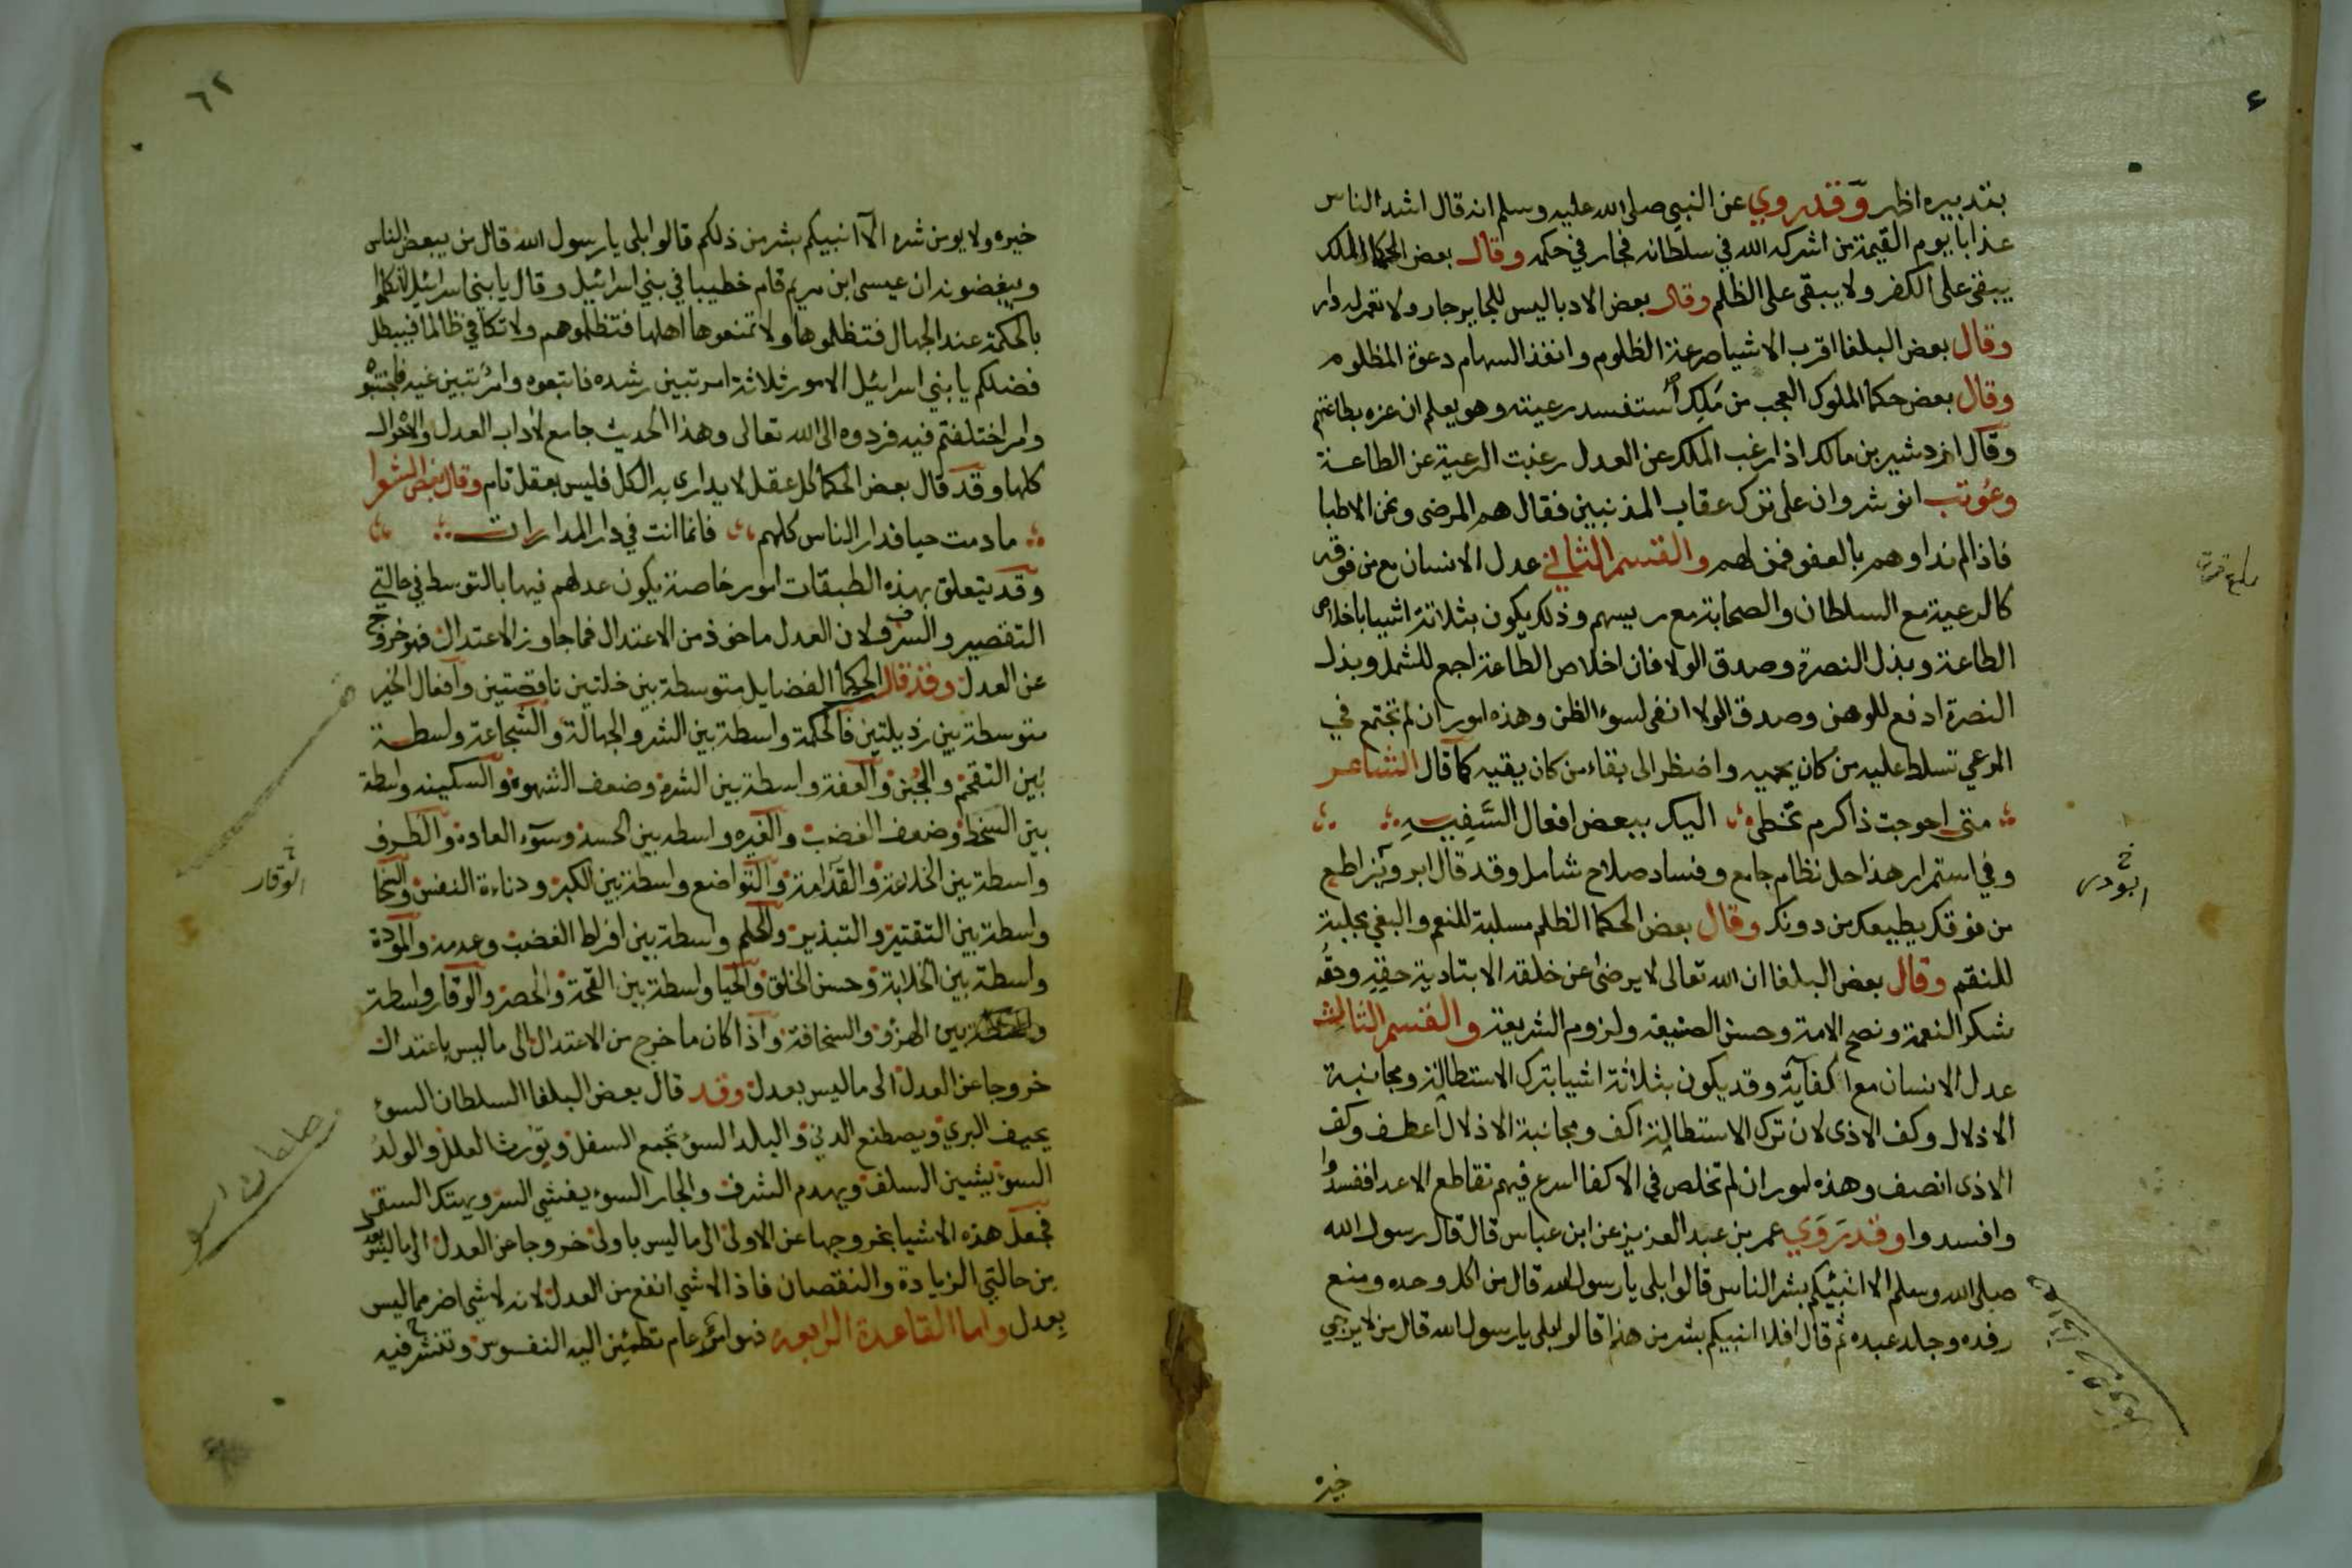 بتدبيره اظهر وقد روي عن النبي صلى الله عليه وسلم انه قال اشد الناس
عذابا يوم القيمة من اشركه الله في سلطانه فجار في حكمه وقال بعض الحكما الملك
يبقى على الكفر ولا يبقى على الظلم وقال بعض الادبا ليس للجاير جار ولا تعمر له دار
وقال بعض البلغا اقرب الاشيا صرعة الظلوم وانفذ السهام دعوة المظلوم
وقال بعض حكما الملوك العجب من ملك استفسد رعيته وهو يعلم ان عزه بطاعتهم
وقال ازدشير بن مالك اذا رغب الملك عن العدل رغبت الرعية عن الطاعة
وعوتب انوشروان على ترك عقاب المذنبين فقال هم المرضى ونحن الاطبا
فاذا لم نداوهم بالعفو فمن لهم والقسم الثاني عدل الانسان مع من فوقه
كالرعية مع السلطان والصحابة مع رييسهم وذلك يكون بثلاثة اشيا باخلاص
الطاعة وبذل النصرة وصدق الولا فان اخلاص الطاعة اجمع للشمل وبذل
النصرة ادفع للوهن وصدق الولا انفى لسوء الظن وهذه امور ان لم تجتمع في
المرعي تسلط عليه من كان يحميه واضطر الى بقاء من كان يقيه كما قال الشاعر
متى احوجت ذا كرم تخطى اليك ببعض افعال السفيه
وفي استمرار هذا حل نظام جامع وفساد صلاح شامل وقد قال ابرويز اطع
من فوقك يطيعك من دونك وقال بعض الحكما الظلم مسلبة للنعم والبغي مجلبة
للنقم وقال بعض البلغا ان الله تعالى لا يرضى عن خلقه الا بتادية حقه وحقه
شكر النعمة ونصح الامة وحسن الصنيعة ولزوم الشريعة والقسم الثالث
عدل الانسان مع اكفايه وقد يكون بثلاثة اشيا بترك الاستطالة ومجانبة
الاذلال وكف الاذى لان ترك الاستطالة اكف ومجانبة الاذلال اعطف وكف
الاذى انصف وهذه امور ان لم تخلص في الاكفا اسرع فيهم تقاطع الاعدا ففسدوا
وافسدوا وقد روي عمر بن عبد العزيز عن ابن عباس قال قال رسول الله
صلى الله وسلم الا انبئيكم بشر الناس قالوا بلى يا رسول الله قال من اكل وحده ومنع
رفده وجلد عبده ثم قال افلا انبيكم بشر من هذا قالوا بلى يا رسول الله قال من لا يرجي
خيره
٦٢
خيره ولا يومن شره الا انبيكم بشر من ذلكم قالوا بلى يا رسول الله قال من يبغض الناس
ويبغضونه ان عيسى ابن مريم قام خطيبا في بني اسرائيل وقال يا بني اسرائيل لا تتكلموا
بالحكمة عند الجهال فتظلموها ولا تمنعوها اهلها فتظلموهم ولا تكافي ظالما فيبطل
فضلكم يا بني اسرائيل الامور ثلاثة امر تبين رشده فاتبعوه وامر تبين غيه فاجتنبوه
وامر اختلفتم فيه فردوه الى الله تعالى وهذا الحديث جامع لاداب العدل والاحوال
كلها وقد قال بعض الحكما كل عقل لا يدارى به الكل فليس بعقل تام وقال بعض الشعرا
ما دمت حيا فدار الناس كلهم فانما انت في دار المدارات
وقد يتعلق بهذه الطبقات امور خاصة يكون عدلهم فيها بالتوسط في حالتي
التقصير والسرف لان العدل ماخوذ من الاعتدال فما جاوز الاعتدال فهو خروج
عن العدل وقد قال الحكما الفضايل متوسطة بين خلتين ناقصتين وافعال الخير
متوسطة بين رذيلتين فالحكمة واسطة بين الشر والجهالة والشجاعة واسطة
بين التقحم والجبن والعفة واسطة بين الشره وضعف الشهوة والسكينه واسطة
بين السخط وضعف الغضب والغيره واسطه بين الحسد وسوء العادة والظرف
واسطة بين الخلاعة والفدامة والتواضع واسطة بين الكبر ودناءة النفس والسخا
واسطة بين التقتير والتبذير والحلم واسطة بين افراط الغضب وعدمه والمودة
واسطة بين الخلابة وحسن الخلق والحيا واسطة بين القحة والحصر والوقار واسطة
بين الهزؤ والسخافة واذا كان ما خرج من الاعتدال الى ما ليس باعتدال
الوقار
خروجا عن العدل الى ما ليس بعدل وقد قال بعض البلغا السلطان السوء
يخيف البري ويصطنع الدني والبلد السوء تجمع السفل ويورث العلل والولد
السوء يشين السلف ويهدم الشرف والجار السوء يفشي السر ويهتك الستر
فجعل هذه الاشيا بخروجها عن الاولى الى ما ليس باولى خروجا عن العدل الى ما ليس بعدل
من حالتي الزيادة والنقصان فاذا لا شي انفع من العدل لانه لا شي اضر مما ليس
بعدل واما القاعدة الرابعه فهو امن عام تطمئن اليه النفوس وتنشر فيه